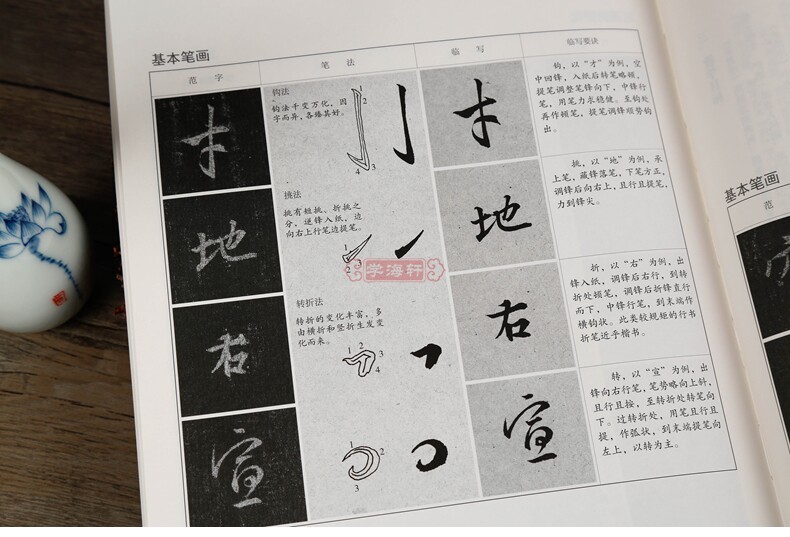 基本笔画
范 字
笔 法
临 写
临写要诀
才
钩法
钩法千变万化，因
字而异，各臻其好。
1
2
3
4
才
钩，以“才”为例，空
中回锋，入纸后转笔略顿，
提笔调整笔锋向下，中锋行
笔，用笔力求稳健。至钩处
再作顿笔，提笔调锋顺势钩
出。
地
挑法
挑有短挑、折挑之
分，逆锋入纸，边
向右上行笔边提笔。
1
2
3
地
挑，以“地”为例，承
上笔，藏锋落笔，下笔方正，
调锋后向右上，且行且提笔，
力到锋尖。
学海轩
右
转折法
转折的变化丰富，多
由横折和竖折生发变
化而来。
1
2
3
4
右
折，以“右”为例，出
锋入纸，调锋后右行，到转
折处顿笔，调锋后折锋直行
而下，中锋行笔，到末端作
横钩状。此类较规矩的行书
折笔近乎楷书。
宣
1
2
3
宣
转，以“宣”为例，出
锋向右行笔，笔势略向上斜，
且行且按，至转折处转笔向
下。过转折处，用笔且行且
提，作弧状，到末端提笔向
左上，以转为主。
基本笔画
范